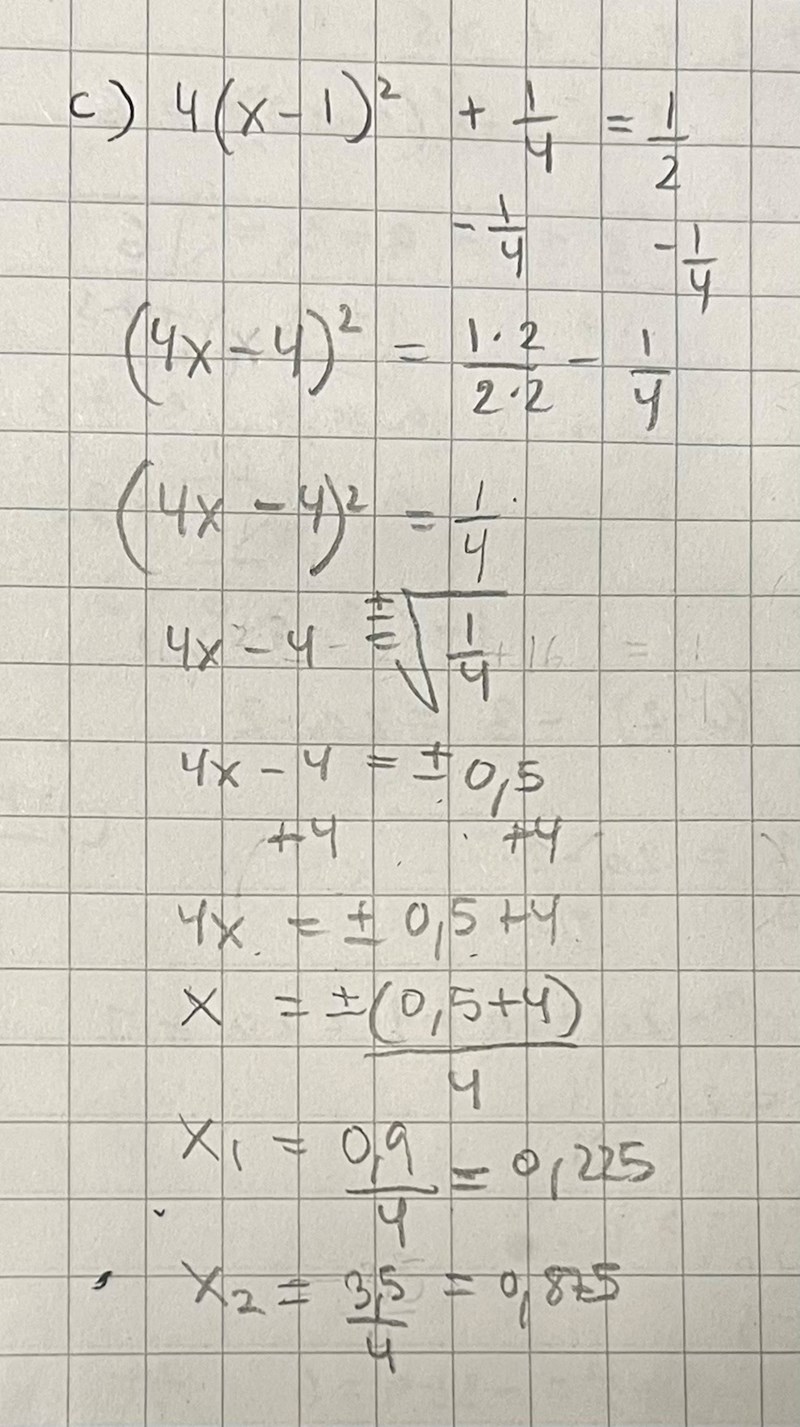 c) 4(x-1)² + 1/4 = 1/2
-1/4 -1/4
(4x-4)² = 1·2/2·2 - 1/4
(4x-4)² = 1/4
4x-4 = ±√1/4
4x-4 = ±0,5
+4 +4
4x = ± 0,5+4
x = ±(0,5+4)/4
x₁ = 0,9/4 = 0,225
x₂ = 3,5/4 = 0,875